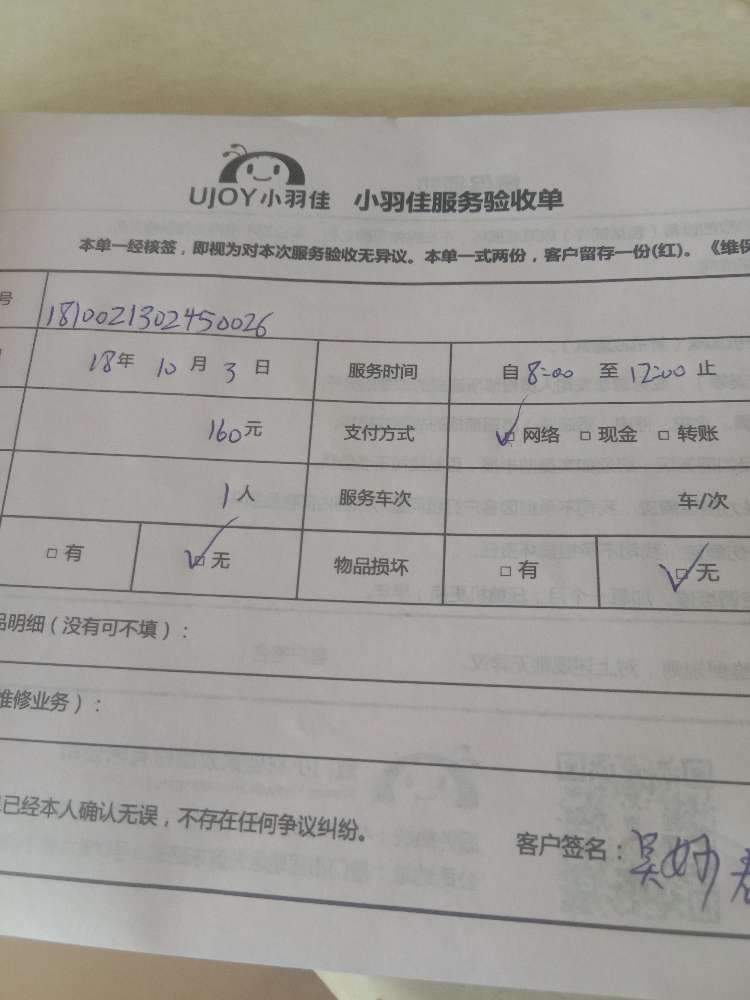 UJOY小羽佳 小羽佳服务验收单
本单一经核签，即视为对本次服务验收无异议。本单一式两份，客户留存一份(红)。《维保
号 1810021302450026
18年 10月 3日 服务时间 自8:00 至 12:00止
160元 支付方式 网络 □现金 □转账
1人 服务车次 车/次
□有 □无 物品损坏 □有 □无
品明细（没有可不填）：
维修业务）：
已经本人确认无误，不存在任何争议纠纷。
客户签名：吴妙